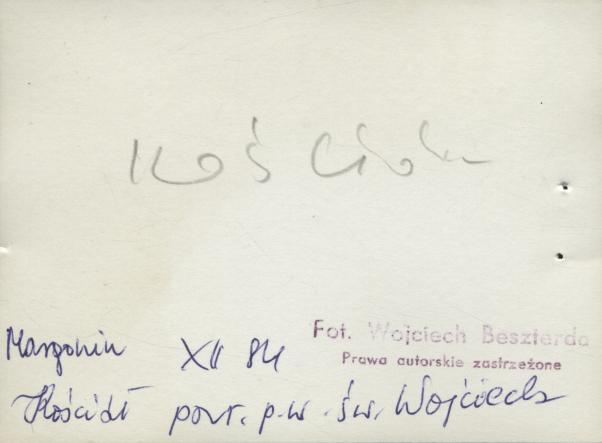 Kościół
Margonin XII 84
Fot. Wojciech Beszterda
Prawa autorskie zastrzeżone
Kościół p.w. św. Wojciecha